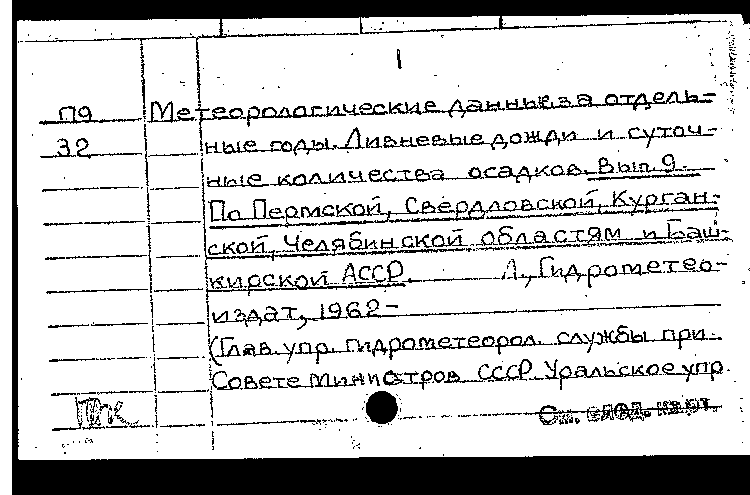 1
П9 Метеорологические данные за отдель-
32 ные годы. Ливневые дожди и суточ-
ные количества осадков. Вып. 9.
По Пермской, Свердловской, Курган-
ской, Челябинской областям и Баш-
кирской АССР. Л., Гидрометео-
издат, 1962-
(Глав. упр. гидрометеорол. службы при
Совете Министров СССР. Уральское упр.
См. след. карт.